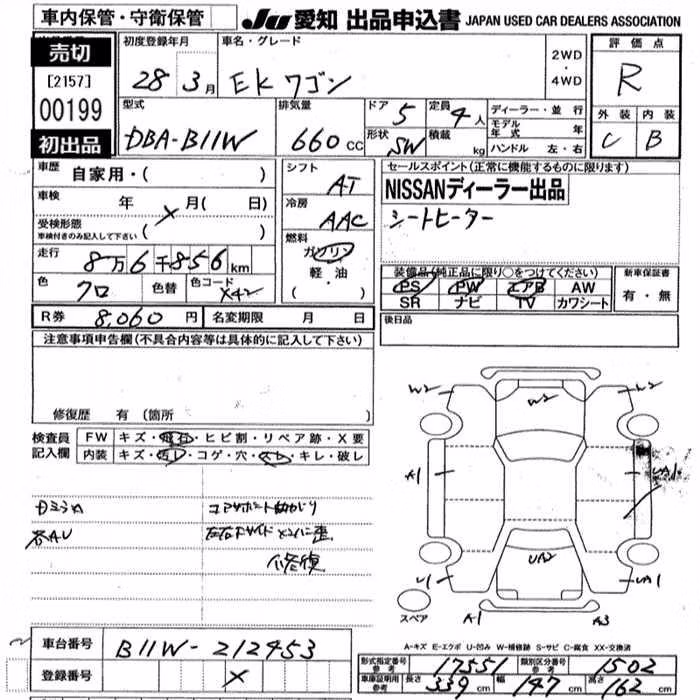 車内保管・守衛保管
JU 愛知 出品申込書 JAPAN USED CAR DEALERS ASSOCIATION
売切
[2157]
00199
初出品
初度登録年月
28 3月
車名・グレード
EKワゴン
2WD
・
4WD
評価点
R
外装 内装
C B
型式
DBA-B11W
排気量
660 CC
ドア 5
形状 SW
定員 4人
積載 kg
ディーラー・並行
モデル年式 年
ハンドル 左・右
車歴
自家用・( )
車検 年 月( 日)
受検形態
車検付きのみ記入して下さい ( )
×
走行
8万6千856km
色 クロ 色替 色コード X42
シフト
AT
冷房
AAC
燃料
ガソリン
軽・油
( )
セールスポイント(正常に機能するものに限ります)
NISSANディーラー出品
シートヒーター
装備品(純正品に限り○をつけてください)
PS PW エアB AW
SR ナビ TV カワシート
新車保証書
有・無
R券 8,060円 名変期限 月 日
後日品
注意事項申告欄(不具合内容等は具体的に記入して下さい)
修復歴 有(箇所 )
検査員
記入欄
FW キズ・飛石・ヒビ割・リペア跡・X要
内装 キズ・汚レ・コゲ・穴・スレ・キレ・破レ
各AU
コアサポート曲がり
修復
W2 W2 W2
A1 UA1
UA2
U1 UA1
スペア
A1 A3
A-キズ E-エクボ U-凹み W-補修跡 S-サビ C-腐食 XX-交換済
車台番号 B11W-212453
登録番号 ×
形式指定番号 参考 17551 類別区分番号 参考 1502
車庫証明用 参考 長さ 339cm 幅 147cm 高さ 162cm